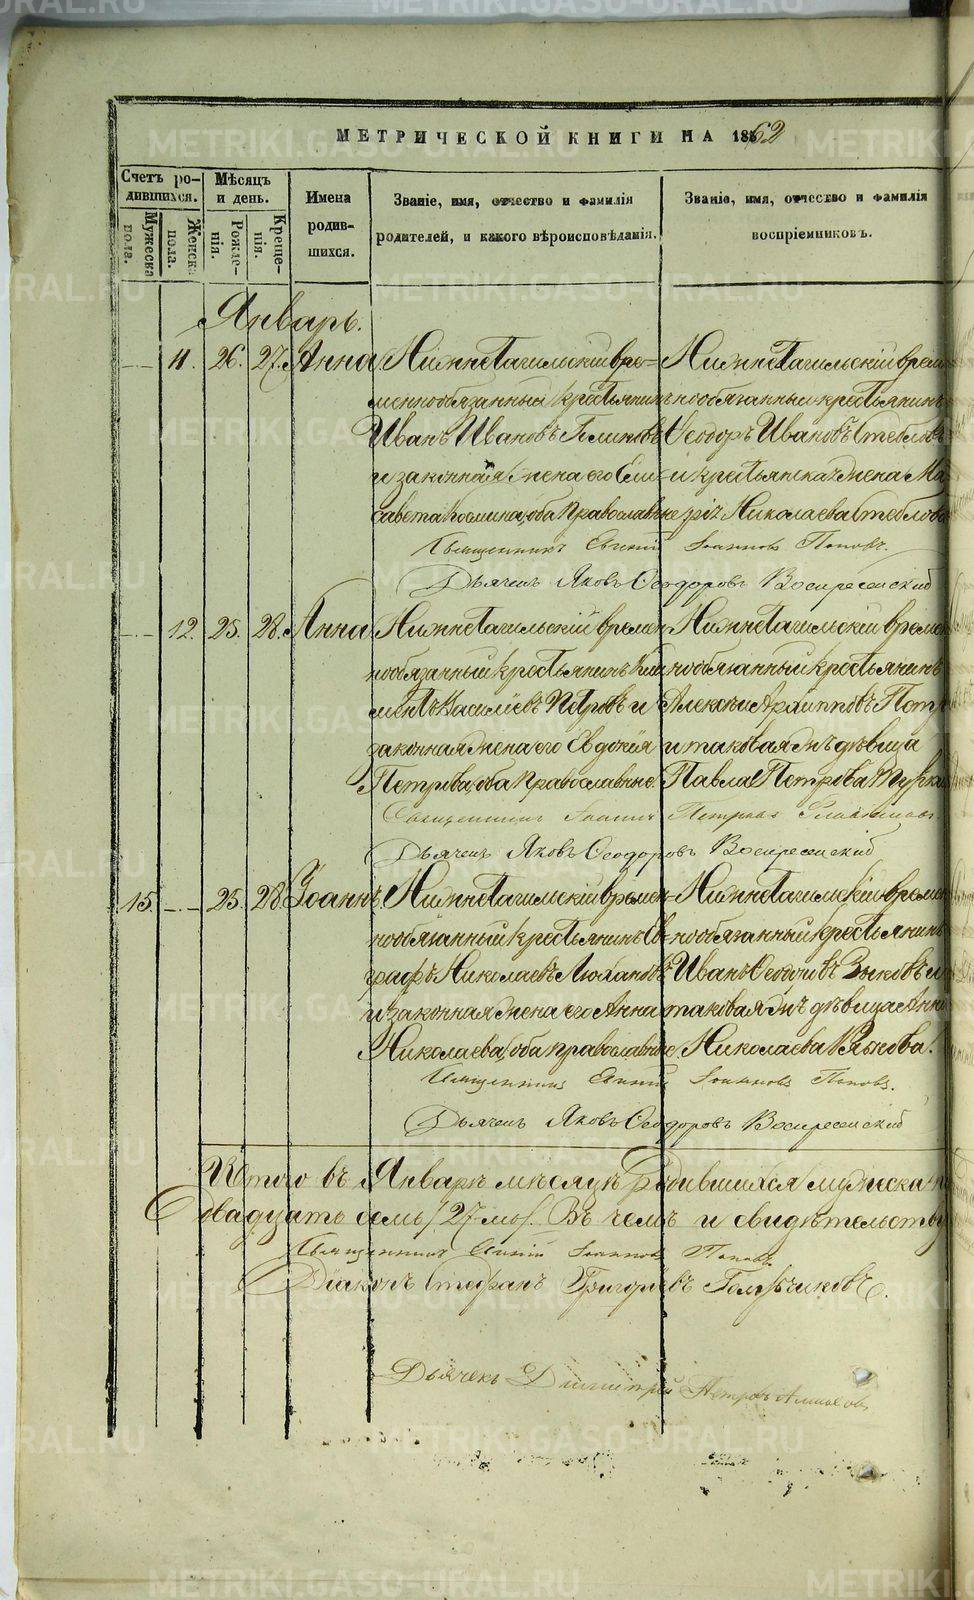 МЕТРИЧЕСКОЙ КНИГИ НА 1862
Счетъ ро-
дившихся.
Мужеска
пола.
Женска
пола.
Мѣсяцъ
и день.
Рожде-
нія.
Креще-
нія.
Имена
родив-
шихся.
Званіе, имя, отчество и фамилія
родителей, и какого вѣроисповѣданія.
Званіе, имя, отчество и фамилія
воспріемниковъ.
Январь.
11. 26. 27. Анна
Нижнетагильскій вре-
меннообязанный крестьянинъ
Иванъ Ивановъ
и законная жена его Ели-
савета оба православные
Нижнетагильскій врем
нообязанный крестьянинъ
Ѳеодоръ Ивановъ Стебловъ
и крестьянская жена Ма
рія Николаева Стеблова
Священникъ Евгеній Іоанновъ Поповъ.
Дьячекъ Яковъ Ѳеодоровъ Воскресенскій
12. 25. 28. Анна
Нижнетагильскій времен
нообязанный крестьянинъ Кли
ментъ Васильевъ Петровъ и
законная жена его Евдокія
Петрова, оба православные.
Нижнетагильскій времен
нообязанный крестьянинъ
Алексѣй Архипповъ Петр
и таковая жъ дѣвица
Павла Петрова
Священникъ Іоаннъ Петровъ
Дьячекъ Яковъ Ѳеодоровъ Воскресенскій
15. 25. 28. Іоаннъ.
Нижнетагильскій времен-
нообязанный крестьянинъ Ев-
графъ Николаевъ Люхановъ
и законная жена его Анна
Николаева, оба православные
Нижнетагильскій времен
нообязанный крестьянинъ
Иванъ Ѳеодоровъ Зыковъ и
таковая жъ дѣвица Анна
Николаева
Священникъ Евгеній Іоанновъ Поповъ.
Дьячекъ Яковъ Ѳеодоровъ Воскресенскій
Итого въ Январѣ мѣсяцѣ родившихся мужеска п
двадцать семь /27-мо/. Въ чемъ и свидѣтельству
Священникъ Евгеній Іоанновъ Поповъ.
Діаконъ Стефанъ Григорьевъ
Дьячекъ Димитрій Петровъ
METRIKI.GASO-URAL.RU